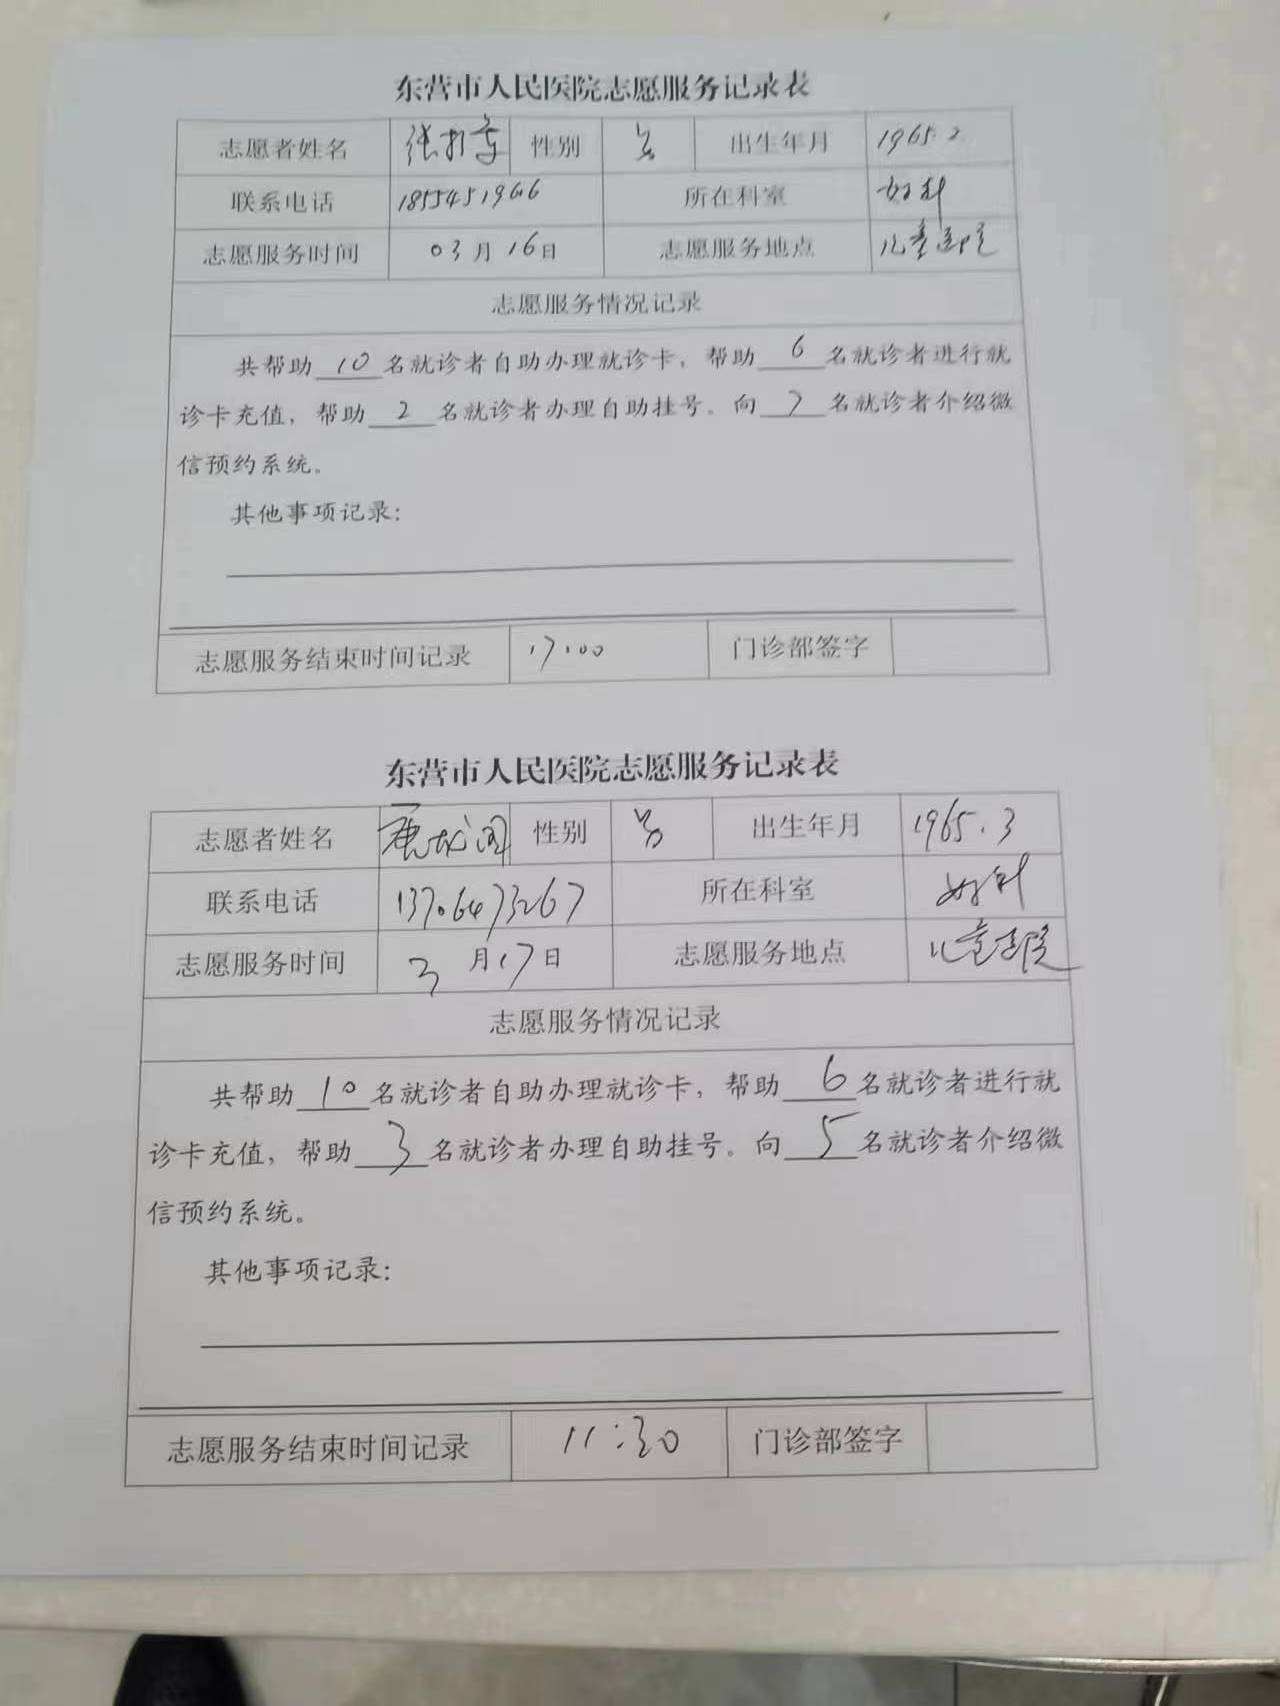 东营市人民医院志愿服务记录表
志愿者姓名 张 性别 男 出生年月 1965.2
联系电话 18554519666 所在科室 妇科
志愿服务时间 03月16日 志愿服务地点 儿童医院
志愿服务情况记录
共帮助10名就诊者自助办理就诊卡，帮助6名就诊者进行就
诊卡充值，帮助2名就诊者办理自助挂号。向7名就诊者介绍微
信预约系统。
其他事项记录：
志愿服务结束时间记录 17:00 门诊部签字
东营市人民医院志愿服务记录表
志愿者姓名 性别 男 出生年月 1965.3
联系电话 13706473267 所在科室 妇科
志愿服务时间 3月17日 志愿服务地点 儿童医院
志愿服务情况记录
共帮助10名就诊者自助办理就诊卡，帮助6名就诊者进行就
诊卡充值，帮助3名就诊者办理自助挂号。向5名就诊者介绍微
信预约系统。
其他事项记录：
志愿服务结束时间记录 11:30 门诊部签字